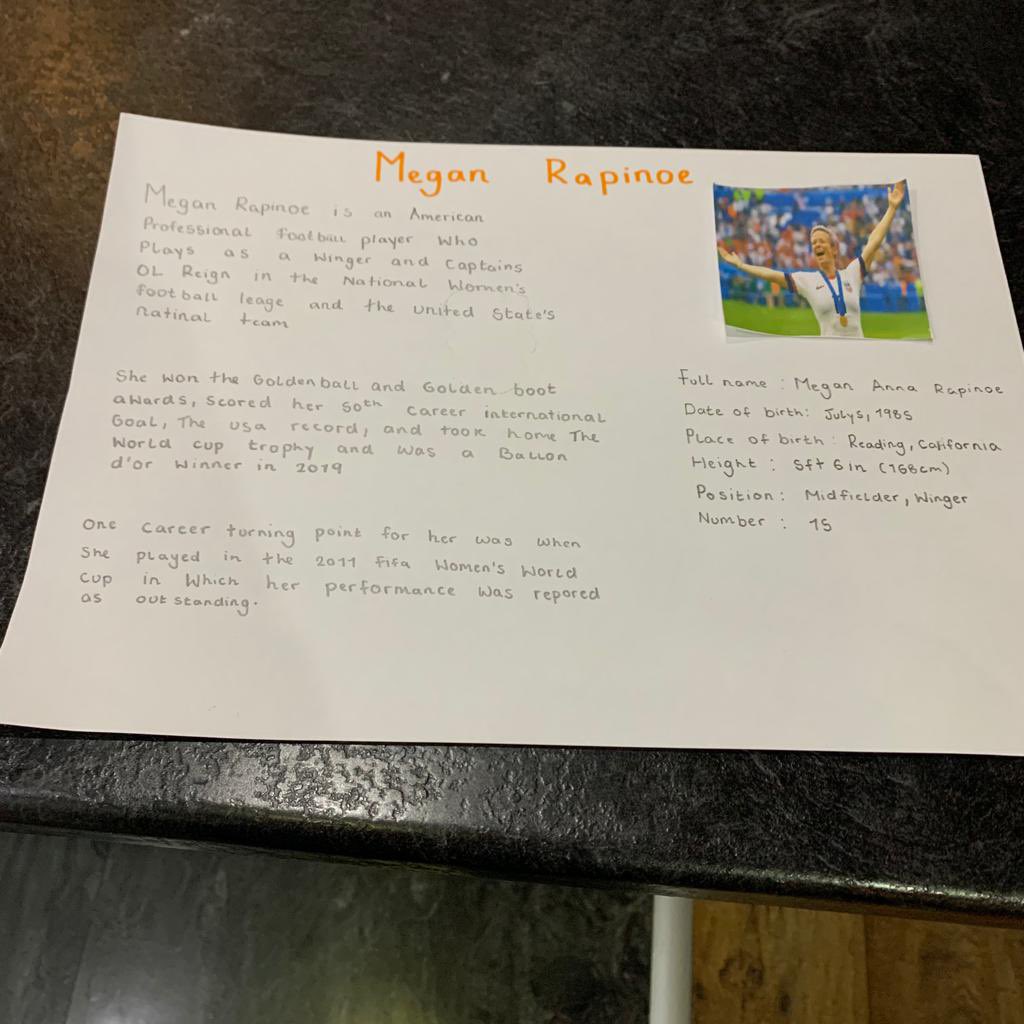 Megan Rapinoe
Megan Rapinoe is an American
Professional football player who
Plays as a Winger and Captains
OL Reign in the National Women's
football leage and the united State's
natinal team
She won the Golden ball and Golden boot
awards, scored her 50th career international
Goal, The usa record, and took home The
World cup trophy and was a Ballon
d'or winner in 2019
One career turning point for her was when
She played in the 2011 fifa Women's World
Cup in Which her performance was repored
as outstanding.
Full name : Megan Anna Rapinoe
Date of birth: July5, 1985
Place of birth : Reading, California
Height : 5ft 6in (168cm)
Position : Midfielder, Winger
Number : 15